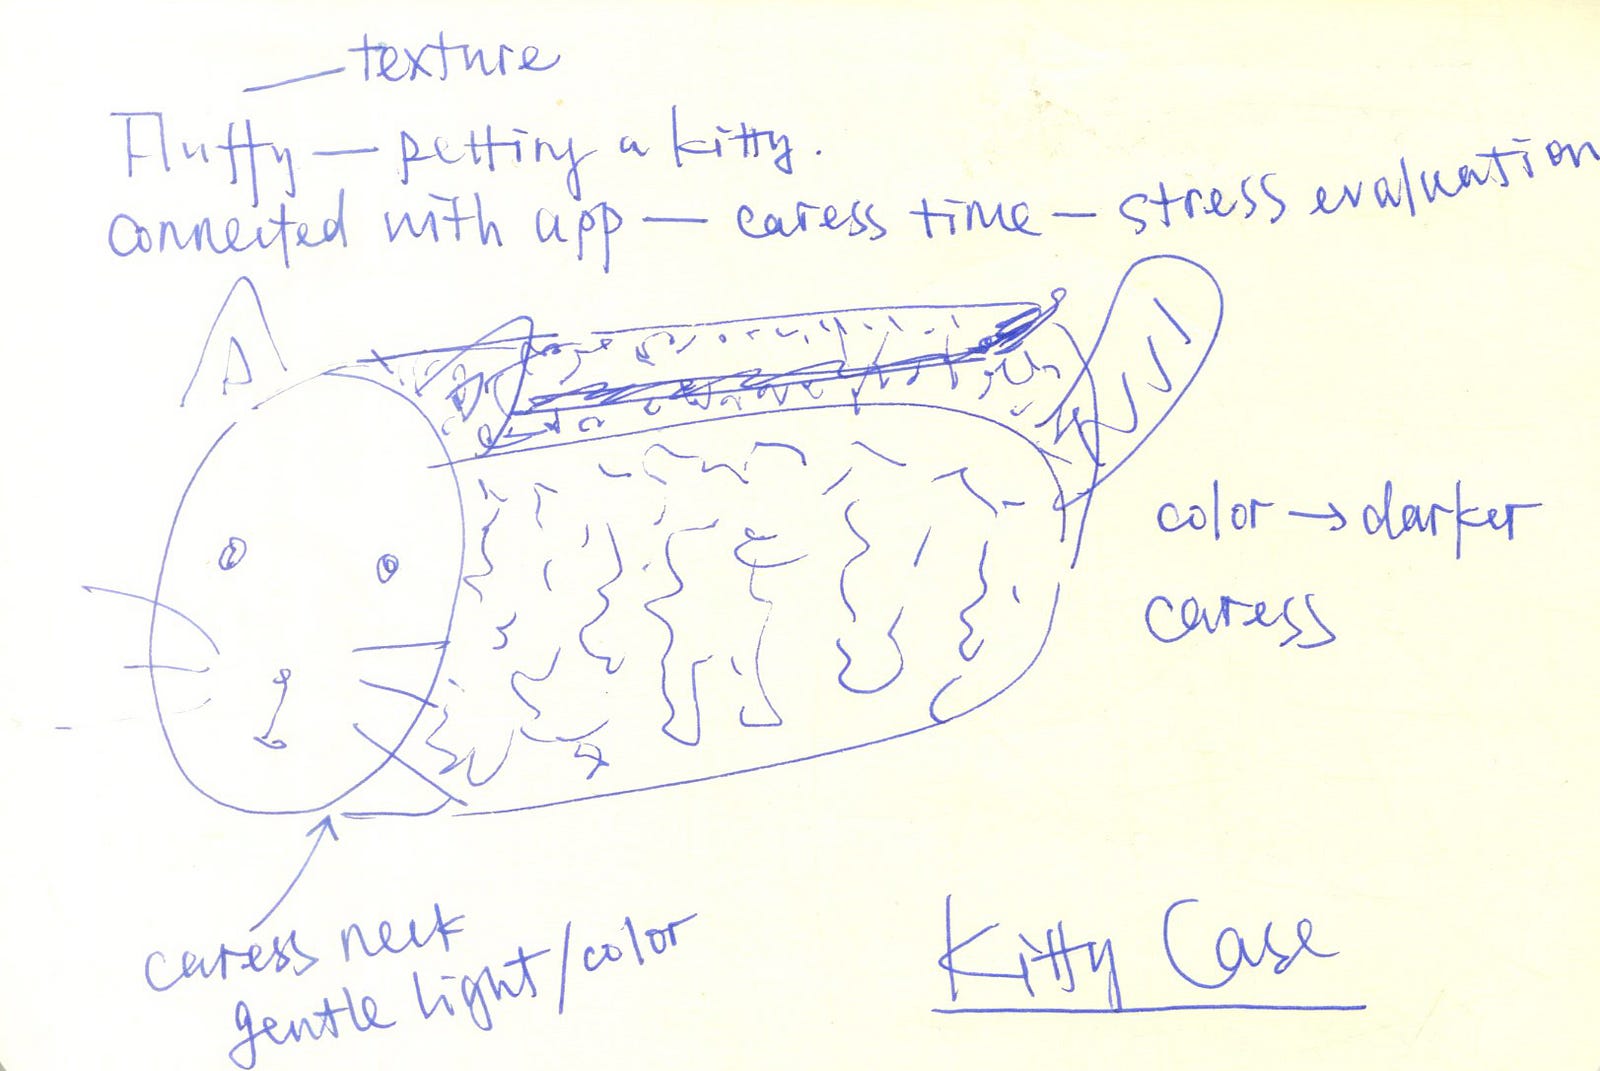 — texture
Fluffy — petting a kitty.
connected with app — caress time — stress evaluation
color → darker
caress
caress neck
gentle light/color
Kitty Case